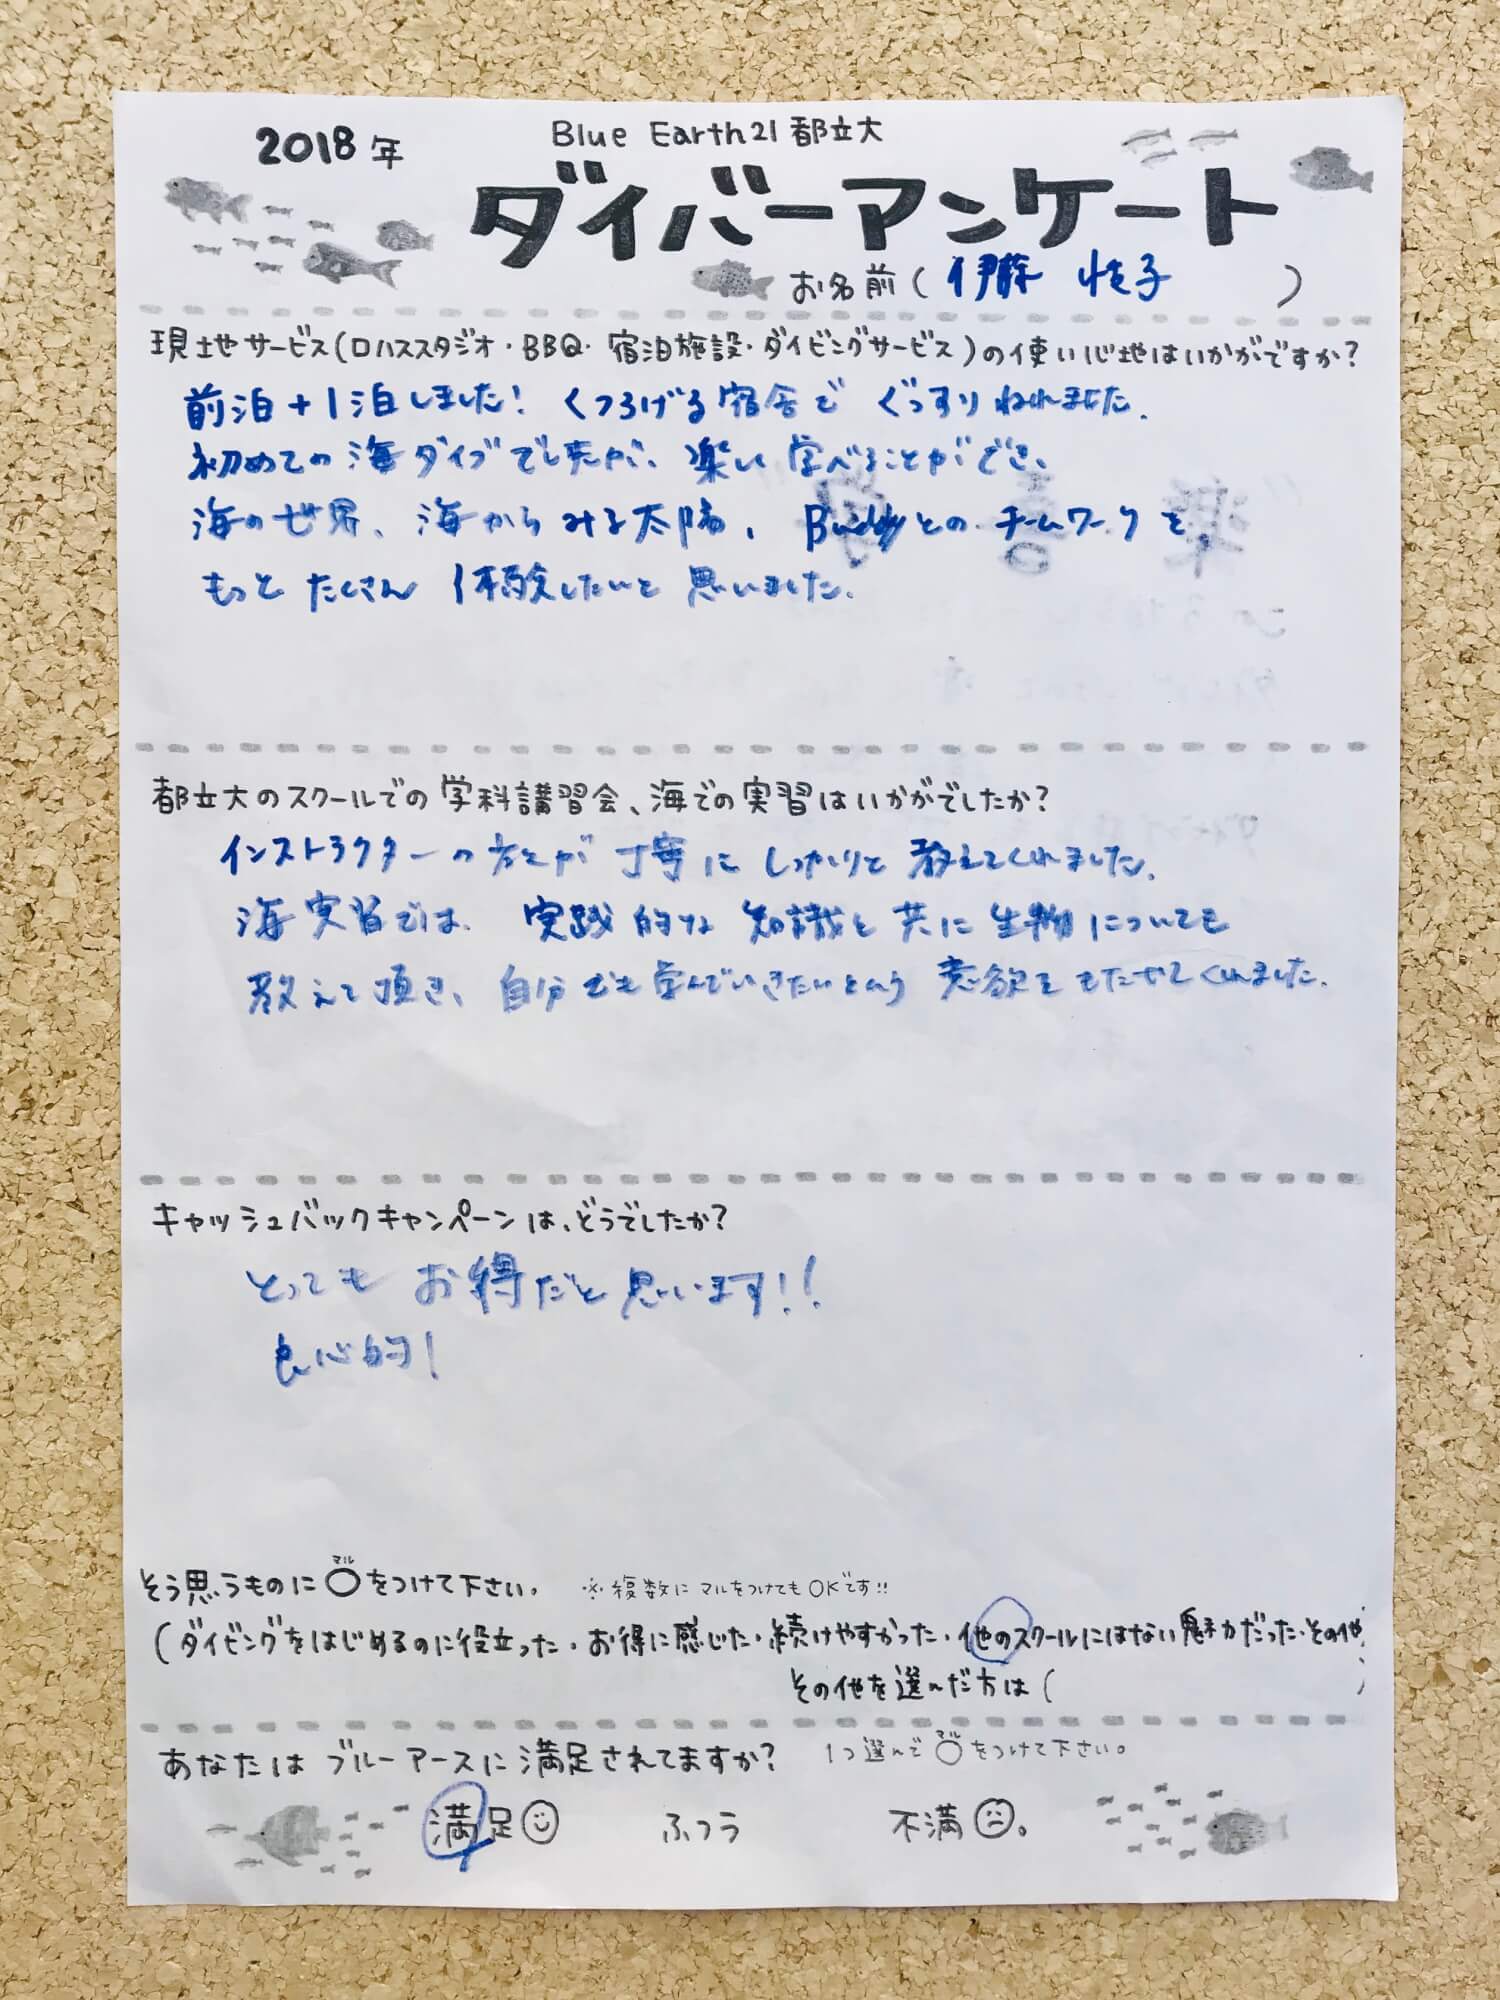 2018年
Blue Earth21 都立大
ダイバーアンケート
お名前( 伊藤 子 )
現地サービス(ロハススタジオ・BBQ・宿泊施設・ダイビングサービス)の使い心地はいかがですか?
前泊+1泊しました! くつろげる宿舎で ぐっすりねれました.
初めての海ダイブでしたが、楽しく学べることができ、
海の世界、海からみる太陽、Buddyとのチームワークを、
もっと たくさん 体験したいと 思いました.
都立大のスクールでの学科講習会、海での実習はいかがでしたか?
インストラクターの方が丁寧にしっかりと教えてくれました.
海実習では、実践的な知識と共に生物についても
教えて頂き、自分でも学んでいきたいという意欲をもたせてくれました.
キャッシュバックキャンペーンは、どうでしたか?
とってもお得だと思います!!
良心的!
マル
そう思うものに〇をつけて下さい。 ※複数にマルをつけてもOKです!!
(ダイビングをはじめるのに役立った・お得に感じた・続けやすかった・他のスクールにはない魅力だった・その他
その他を選んだ方は( )
あなたはブルーアースに満足されてますか? 1つ選んで〇をつけて下さい。
マル
満足 ふつう 不満。